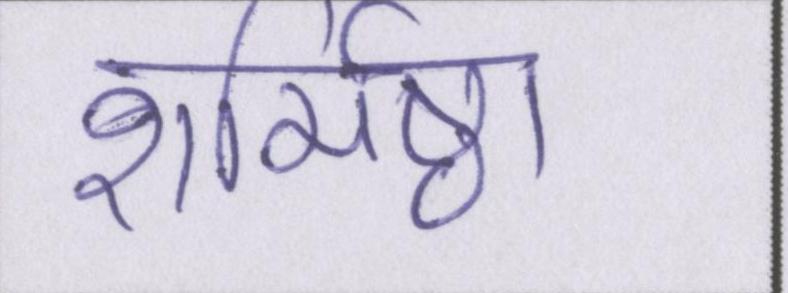 शर्मिष्ठा